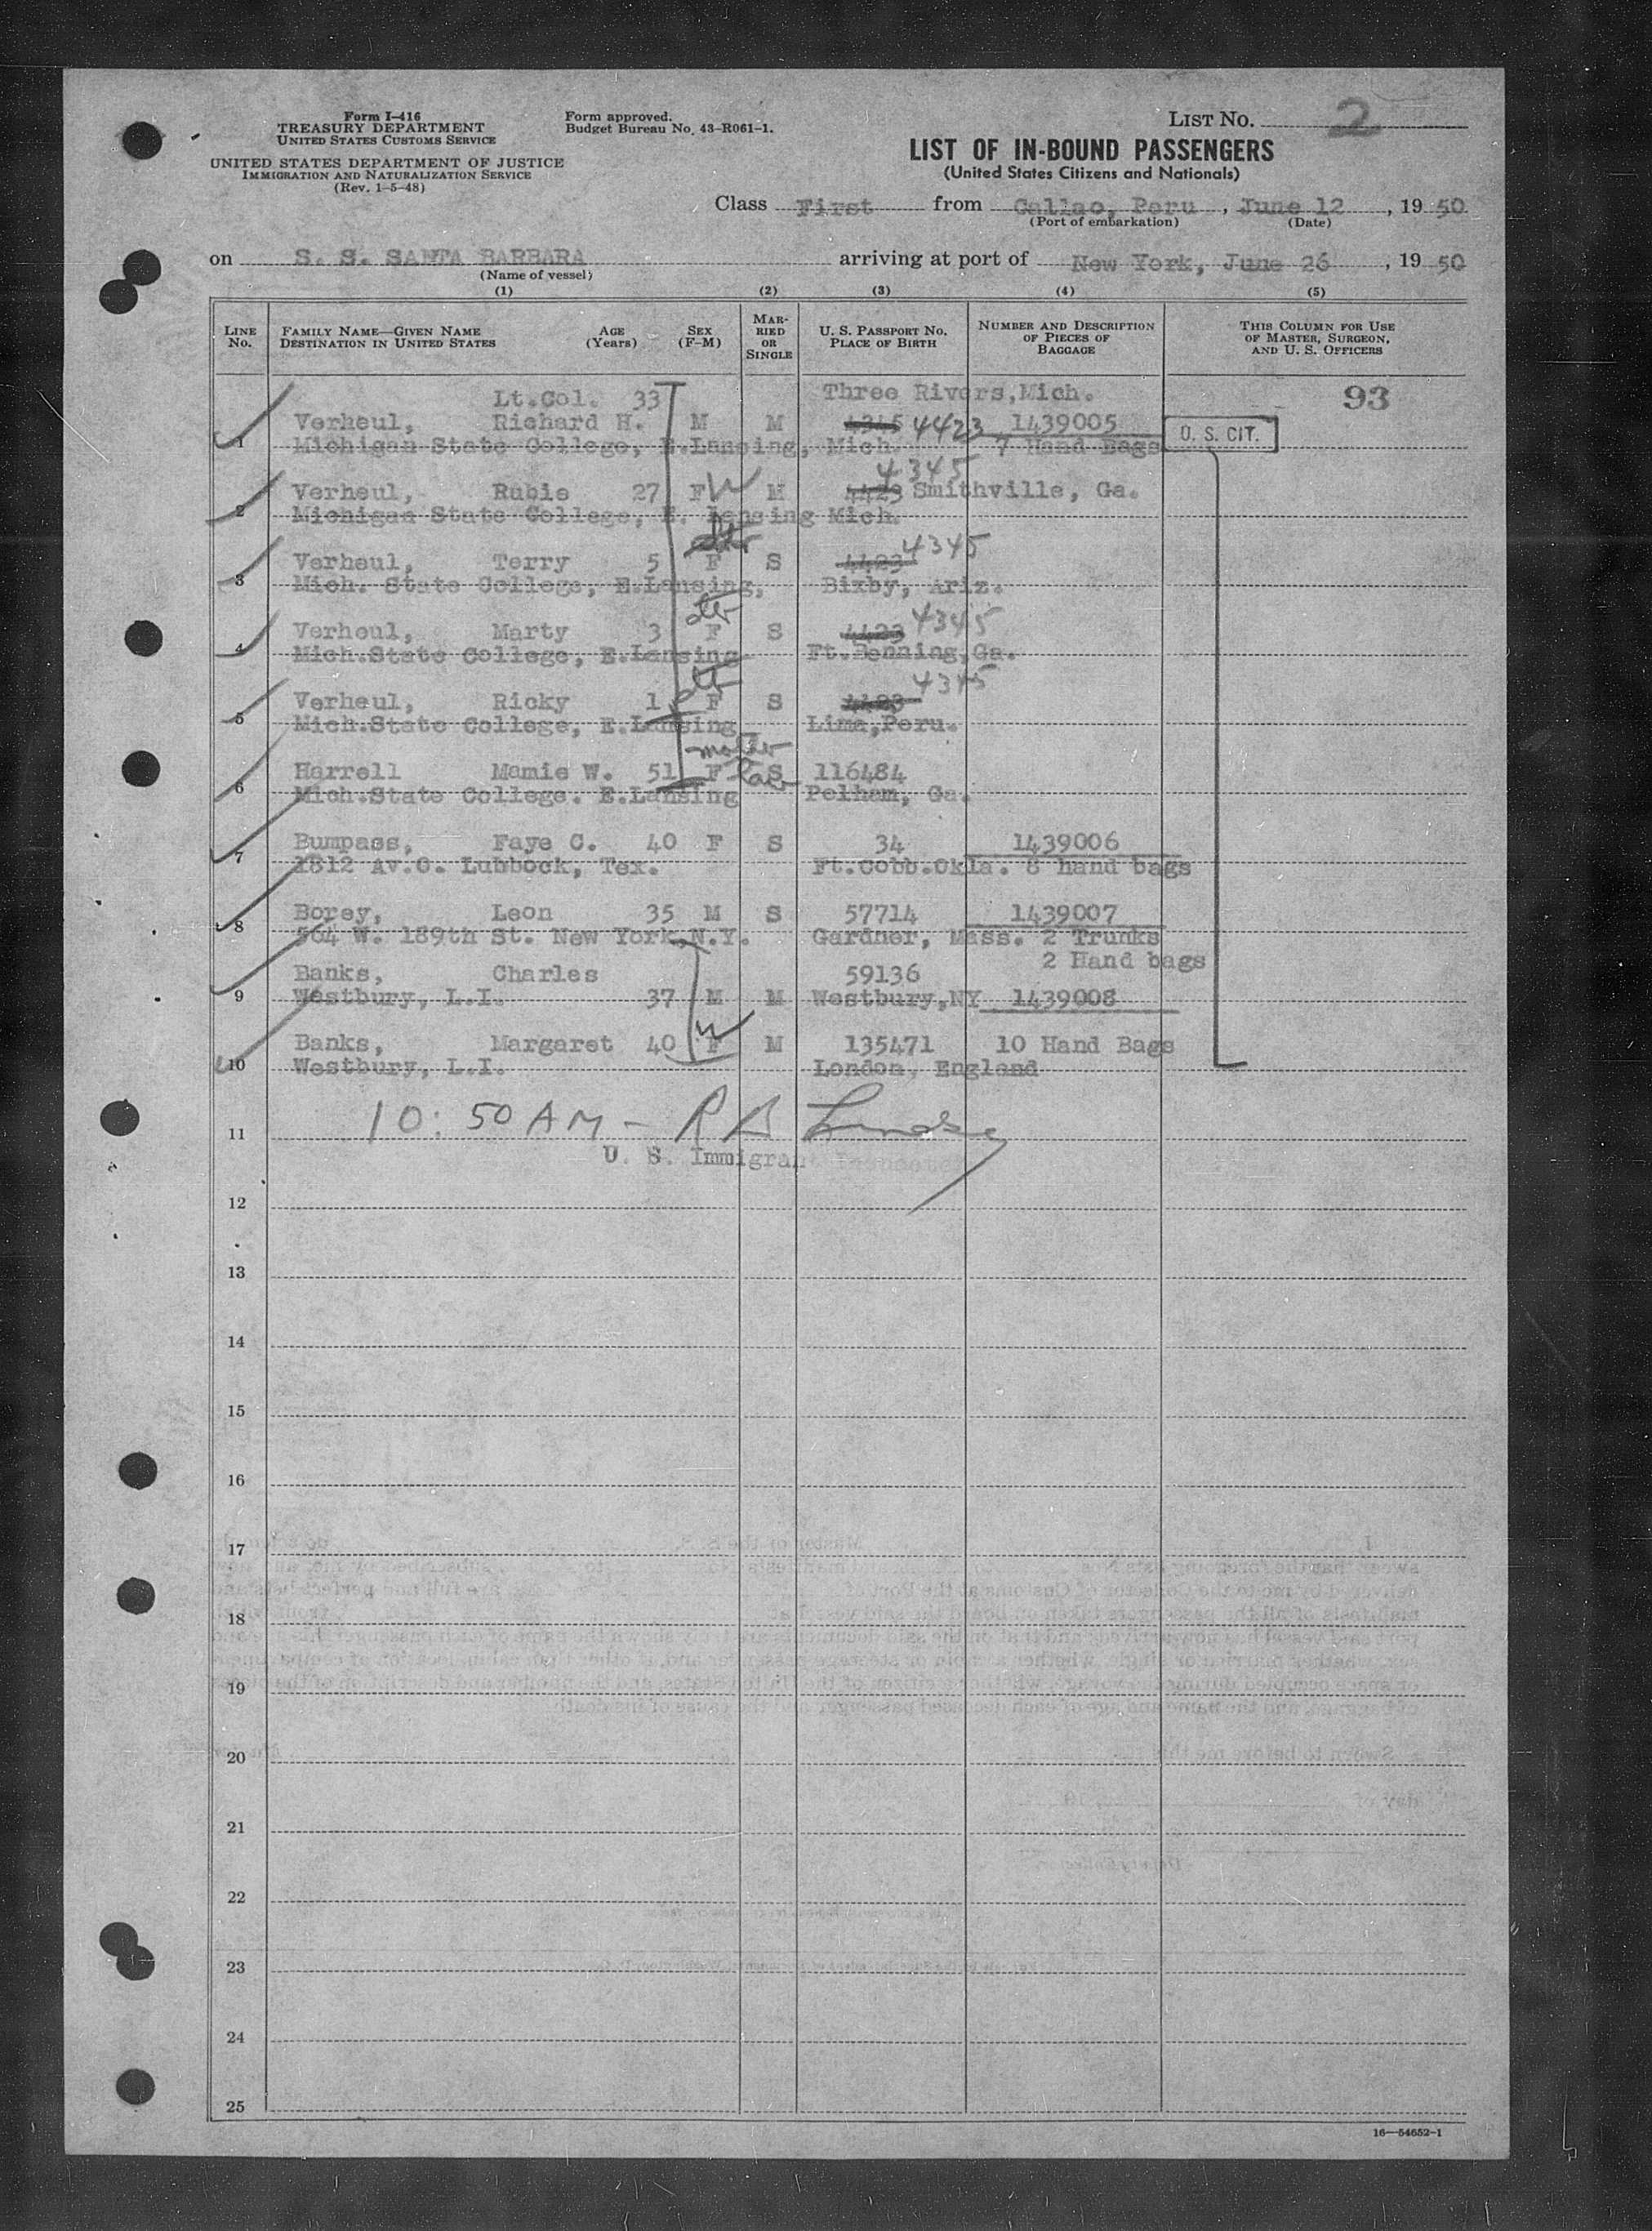 Form I-416
TREASURY DEPARTMENT
UNITED STATES CUSTOMS SERVICE
UNITED STATES DEPARTMENT OF JUSTICE
IMMIGRATION AND NATURALIZATION SERVICE
(Rev. 1-5-48)
Form approved.
Budget Bureau No. 43-R061-1.
LIST NO. 2
LIST OF IN-BOUND PASSENGERS
(United States Citizens and Nationals)
Class First from Callao, Peru, June 12, 19 50
(Port of embarkation) (Date)
on S. S. SANTA BARBARA arriving at port of New York, June 26, 19 50
(Name of vessel)
(1) (2) (3) (4) (5)
LINE NO. FAMILY NAME—GIVEN NAME DESTINATION IN UNITED STATES AGE (Years) SEX (F-M) MARRIED OR SINGLE U. S. PASSPORT NO. PLACE OF BIRTH NUMBER AND DESCRIPTION OF PIECES OF BAGGAGE THIS COLUMN FOR USE OF MASTER, SURGEON, AND U. S. OFFICERS
Lt.Col. 33 Three Rivers,Mich. 93
Verheul, Richard H. M M 4345 4423 1439005 U. S. CIT.
1 Michigan State College, E.Lansing, Mich. 7 Hand Bags
4345
Verheul, Rubie 27 F W M 4423 Smithville, Ga.
2 Michigan State College, E. Lansing Mich.
dtr 4345
Verheul, Terry 5 F S 4423
3 Mich. State College, E.Lansing, Bixby, Ariz.
dtr
Verheul, Marty 3 F S 4423 4345
4 Mich.State College, E.Lansing Ft.Benning,Ga.
dtr 4345
Verheul, Ricky 1 F S 4423
5 Mich.State College, E.Lansing Lima,Peru.
mother
Harrell Mamie W. 51 F law S 116484
6 Mich.State College. E.Lansing Pelham, Ga.
Bumpass, Faye C. 40 F S 34 1439006
7 1812 Av.O. Lubbock, Tex. Ft.Cobb.Okla. 8 hand bags
Borey, Leon 35 M S 57714 1439007
8 564 W. 189th St. New York,N.Y. Gardner, Mass. 2 Trunks
2 Hand bags
Banks, Charles 59136
9 Westbury, L.I. 37 M M Westbury,NY 1439008
Banks, Margaret 40 F W M 135471 10 Hand Bags
10 Westbury, L.I. London, England
11 10:50 AM - R B
U. S. Immigrant Inspector
12
13
14
15
16
17
18
19
20
21
22
23
24
25
16—54652-1